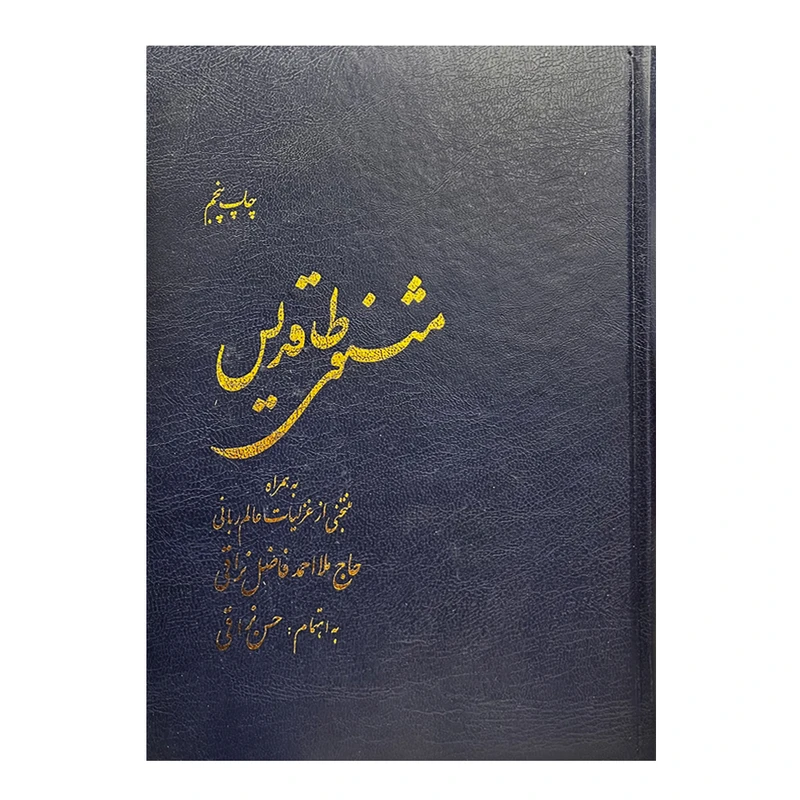 چاپ پنجم
مثنوی طاقدیس
به همراه
منتخبی از غزلیات عالم ربانی
حاج ملا احمد فاضل نراقی
به اهتمام : حسن نراقی